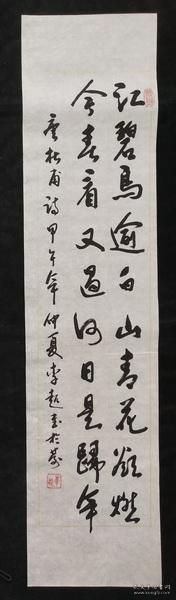 江碧鳥逾白山青花欲燃
今春看又過何日是歸年
唐杜甫詩甲午年仲夏李超書於